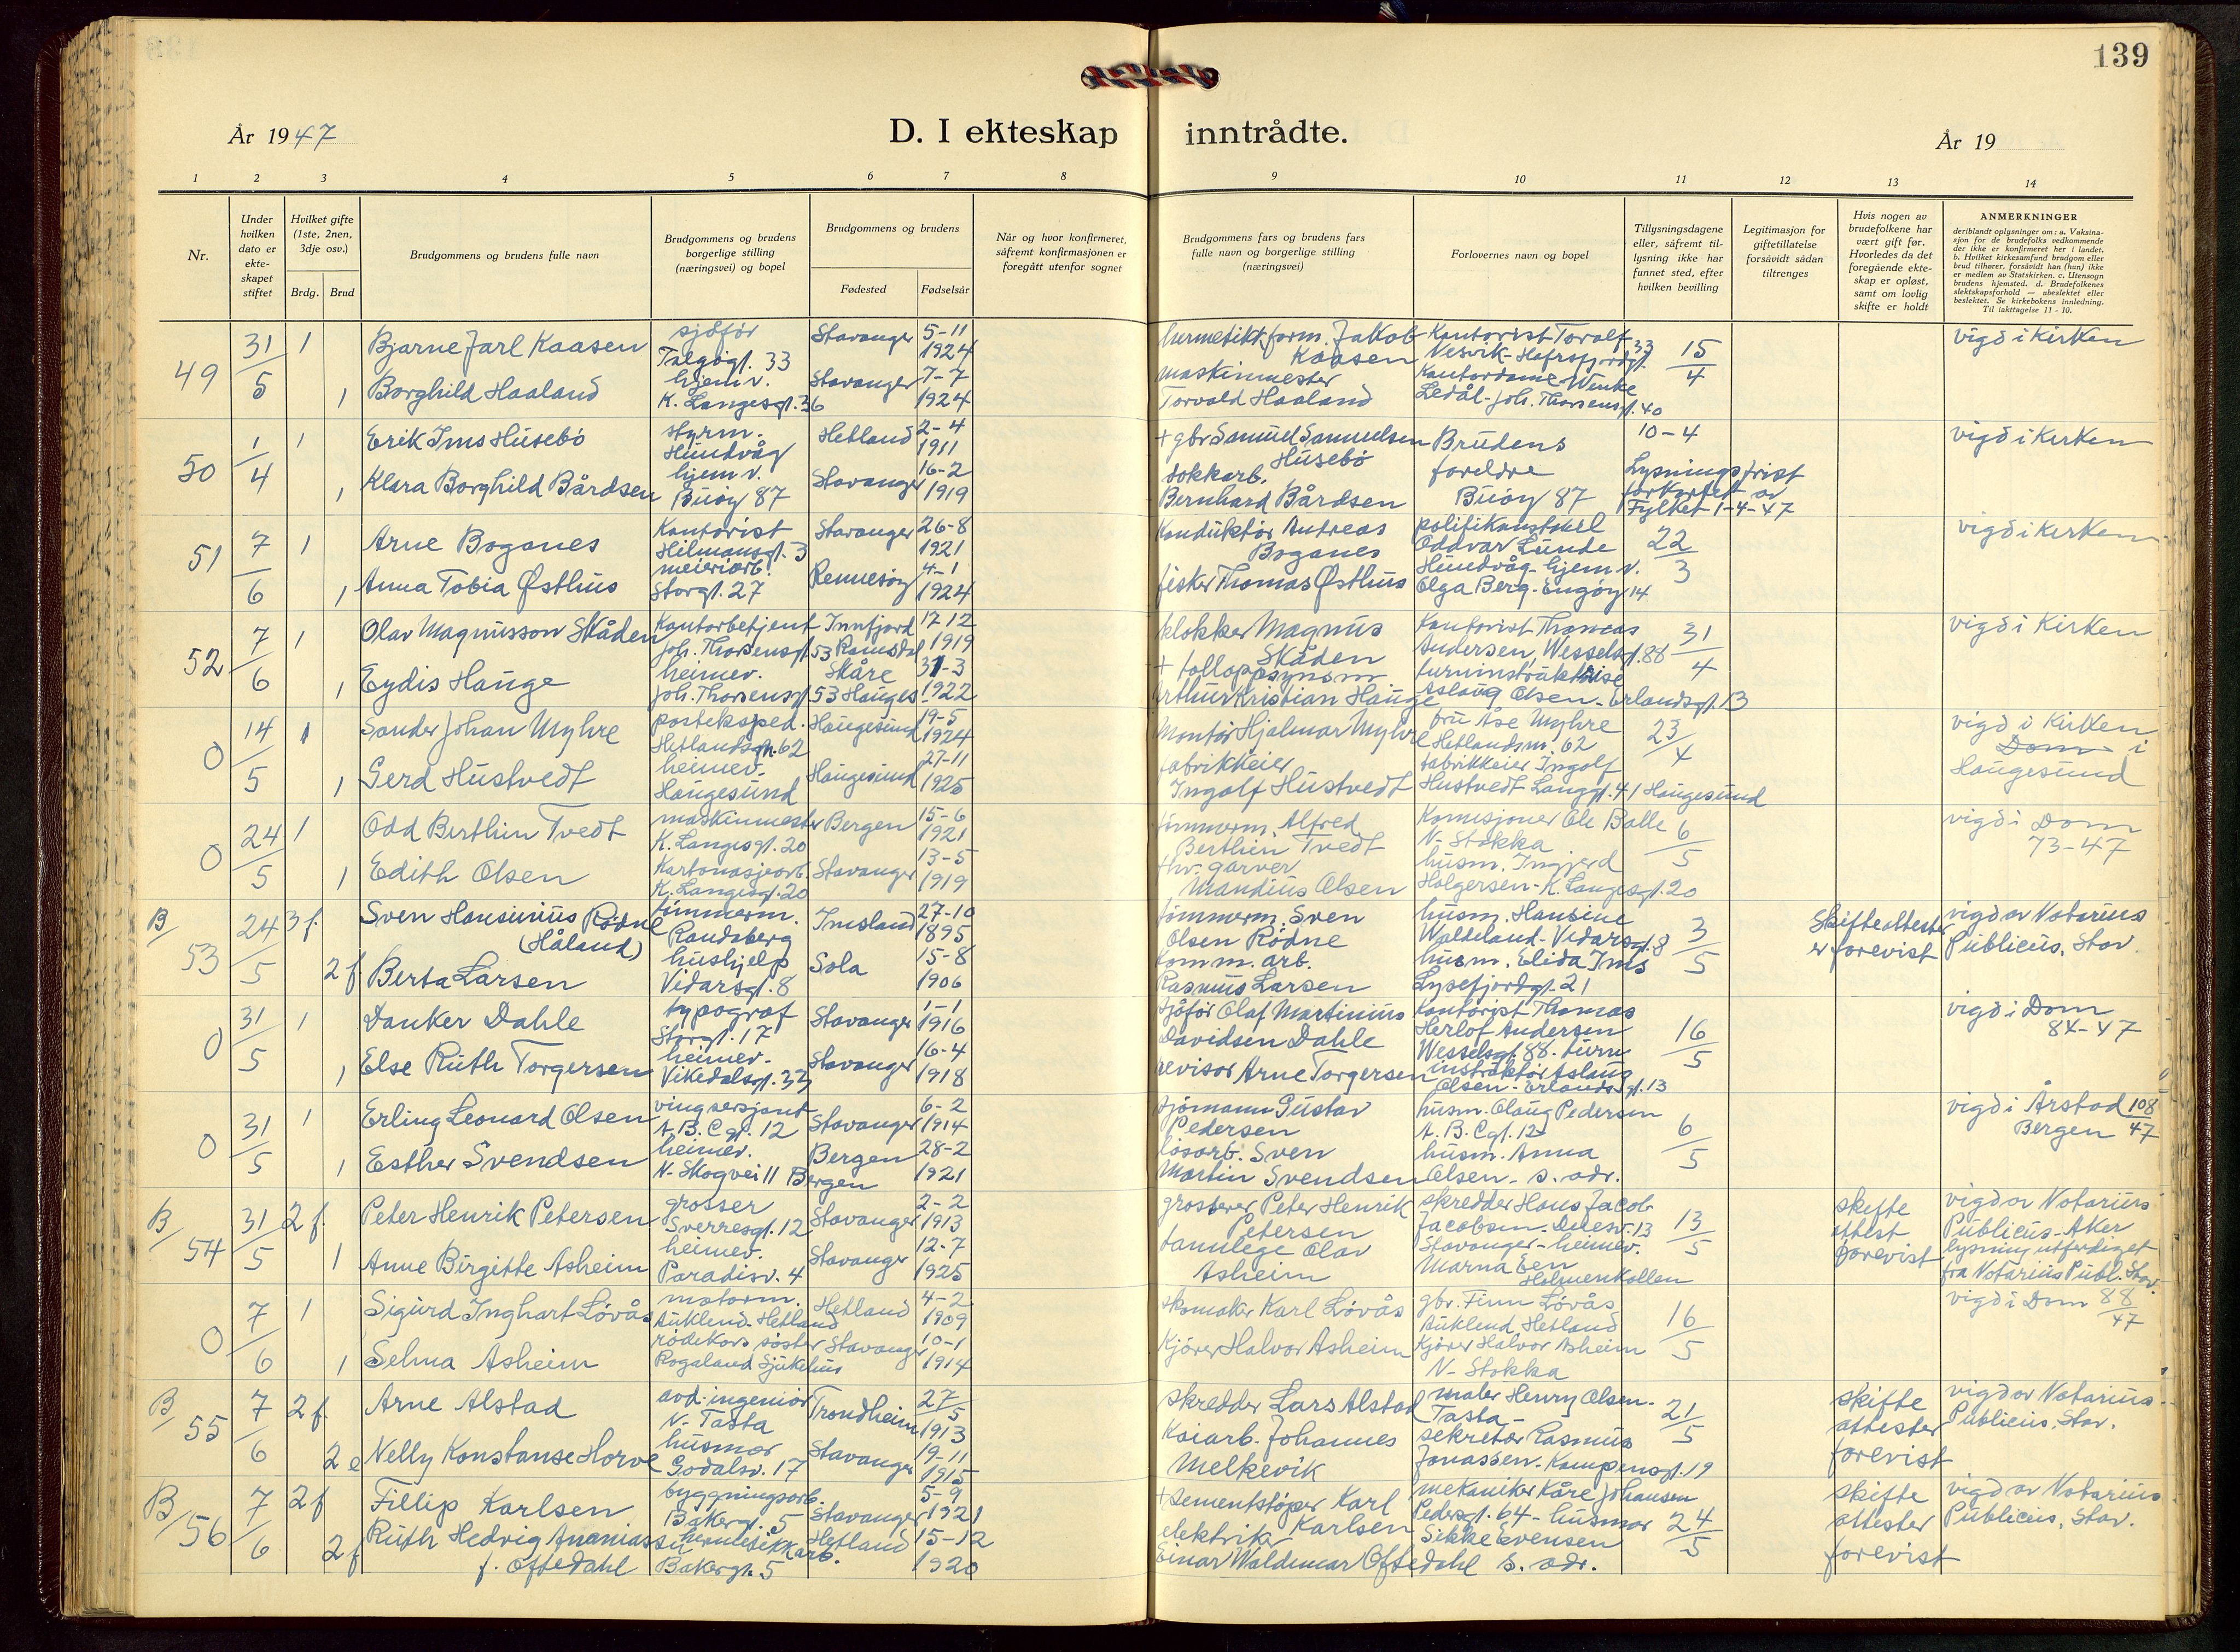 139
År 1947
D. I ekteskap inntrådte.
År 19
1 2 3 4 5 6 7 8 9 10 11 12 13 14
Nr.
Under hvilken dato er ekteskapet stiftet
Hvilket gifte (1ste, 2nen, 3dje osv.)
Brdg. Brud
Brudgommens og brudens fulle navn
Brudgommens og brudens borgerlige stilling (næringsvei) og bopel
Brudgommens og brudens
Fødested Fødselsår
Når og hvor konfirmeret, såfremt konfirmasjonen er foregått utenfor sognet
Brudgommens fars og brudens fars fulle navn og borgerlige stilling (næringsvei)
Forlovernes navn og bopel
Tillysningsdagene eller, såfremt tillysning ikke har funnet sted, efter hvilken bevilling
Legitimasjon for giftetillatelse forsåvidt sådan tiltrenges
Hvis nogen av brudefolkene har vært gift før. Hvorledes da det foregående ekteskap er opløst, samt om lovlig skifte er holdt
ANMERKNINGER
deriblandt oplysninger om: a. Vaksinasjon for de brudefolks vedkommende der ikke er konfirmeret her i landet. b. Hvilket kirkesamfund brudgom eller brud tilhører, forsåvidt han (hun) ikke er medlem av Statskirken. c. Utensogn brudens hjemsted. d. Brudefolkenes slektskapsforhold — ubeslektet eller beslektet. Se kirkebokens innledning. Til iakttagelse 11 - 10.
49 31/5 1 Bjarne Jarl Kaasen sjåfør Talgøgt. 33 Stavanger 5-11 1924 hermetikkform. Jakob Kaasen Kontorist Toralf Nesvik - Hafrsfjordgt. 33 15/4 vigd i Kirken
1 Borghild Haaland hjemv. K. Langesgt. 36 Stavanger 7-7 1924 maskinmester Torvald Haaland Kontordame Wenke Ledål - Joh. Thorsensgt. 40
50 1/4 1 Erik Ims Husebö styrm. Hundvåg Hetland 2-4 1911 + gbr Samuel Samuelsen Husebö Brudens foreldre Buøy 87 10-4 Lysningsfrist forkortet av Fylket 1-4-47 vigd i Kirken
1 Klara Borghild Bårdsen hjemv. Buøy 87 Stavanger 16-2 1919 dokkarb. Bernhard Bårdsen
51 7/6 1 Arne Boganes Kontorist Hilmansgt. 3 Stavanger 26-8 1921 Konduktör Andreas Boganes politikonstabel Oddvar Lunde Hundvåg - hjemv. 22/3 vigd i Kirken
1 Anna Tobia Østhus meieriarb. Storgt. 27 Rennesøy 4-1 1924 fisker Thomas Østhus Olga Berg - Engøy 14
52 7/6 1 Olav Magnusson Skåden Kontorbetjent Joh. Thorsensgt. 53 Innfjord Romsdal 17-12 1919 klokker Magnus Skåden Kontorist Thomas Andersen, Wesselsgt. 88 31/4 vigd i Kirken
1 Eydis Hauge heimev. Joh. Thorsensgt. 53 Skåre Hauges. 31-3 1922 + tolloppsynsm Arthur Kristian Hauge turninstruktrise Aslaug Olsen - Erlandsgt. 13
0 14/5 1 Sander Johan Myhre posteksped. Hetlandsgt. 62 Haugesund 19-5 1924 Montör Hjalmar Myhre fru Åse Myhre Hetlandsm. 62 23/4 vigd i Kirken Dom i Haugesund
1 Gerd Hustvedt heimev. Haugesund Haugesund 27-11 1925 fabrikkeier Ingolf Hustvedt fabrikkeier Ingolf Hustvedt Langgt. 41 Haugesund
0 24/5 1 Odd Berthin Tvedt maskinmester K. Langesgt. 20 Bergen 15-6 1921 tömmerm. Alfred Berthin Tvedt Komisjoner Ole Balle N. Stokka 6/5 vigd i Dom 73-47
1 Edith Olsen Kartonasjearb. K. Langesgt. 20 Stavanger 13-5 1919 + hv. garver Mandius Olsen husm. Ingjerd Holgersen - K. Langesgt. 20
B/53 24/5 3 f. Sven Hansinius Rödne (Håland) tömmerm. Randaberg Imsland 27-10 1895 tömmerm. Sven Olsen Rödne husm. Hansine Waldeland - Vidarsgt. 8 3/5 Skifteattester er forevist vigd av Notarius Publicus, Stav.
2 f. Berta Larsen hushjelp Vidarsgt. 8 Sola 15-8 1906 komm. arb. Rasmus Larsen husm. Elida Ims Lysefjordgt. 21
0 31/5 1 Danker Dahle typograf Storgt. 17 Stavanger 1-1 1916 sjåför Olaf Martinius Davidsen Dahle Kontorist Thomas Herlof Andersen Wesselsgt. 88. 16/5 vigd i Dom 84-47
1 Else Ruth Torgersen heimev. Vikedalsgt. 33 Stavanger 16-4 1918 revisor Arne Torgersen turninstruktör Aslaug Olsen - Erlandsgt. 13
0 31/5 1 Erling Leonard Olsen vingsersjant A.B.C gt. 12 Stavanger 6-2 1914 sjömann Gustav Pedersen husm. Olaug Pedersen A.B.C gt. 12 6/5 vigd i Årstad Bergen 108/47
1 Esther Svendsen heimev. N. Skogvei 11 Bergen Bergen 28-2 1921 lösarb. Sven Martin Svendsen husm. Anna Olsen - s. adr.
B/54 31/5 2 f. Peter Henrik Petersen grosser Sverresgt. 12 Stavanger 2-2 1913 grosserer Peter Henrik Petersen skredder Hans Jacob Jacobsen - 13 Stavanger - heimev. 13/5 skifte attest forevist vigd av Notarius Publicus - Aker lysning utferdiget fra Notarius Publ. Stav.
1 Anne Birgitte Asheim heimev. Paradisv. 4 Stavanger 12-7 1925 tannlege Olav Asheim Marna Holmenkollen
0 7/6 1 Sigurd Inghart Lövås motorm. Auklend - Hetland Hetland 4-2 1909 skomaker Karl Lövås gbr. Finn Lövås Auklend Hetland 16/5 vigd i Dom 88/47
1 Selma Asheim rödekors söster Rogaland Sjukehus Stavanger 10-1 1914 Kjörer Halvor Asheim Kjörer Halvor Asheim N. Stokka
B/55 7/6 2 f. Arne Alstad avd. ingeniör N. Tasta Trondheim 27/5 1913 skredder Lars Alstad maler Henry Olsen - Tasta - 21/5 skifte attester forevist vigd av Notarius Publicus, Stav.
2 e Nelly Konstanse Horve husmor Godalsv. 17 Stavanger 19-11 1915 Kaiarb. Johannes Melkevik sekretær Rasmus Jonassen - Kampensgt. 19
B/56 7/6 2 f Fillip Karlsen byggningsarb. Bakergt. 5 Stavanger 5-9 1921 + sementstöper Karl Karlsen mekaniker Kåre Johansen Pedersgt. 64 - husmor 24/5 skifte attester forevist vigd av Notarius Publicus, Stav.
2 f Ruth Hedvig Ananiassen f. Oftedahl hermetikkarb. Bakergt. 5 Hetland 15-12 1920 elektriker Einar Waldemar Oftedahl Sikke Evensen s. adr.